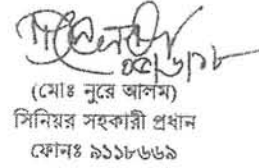 (মোঃ নুরে আলম)
সিনিয়র সহকারী প্রধান
ফোনঃ ৯১১৮৬৬৯